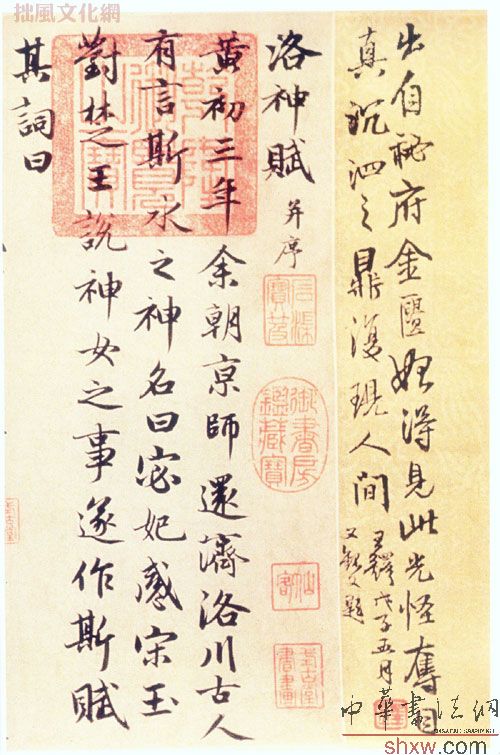 拙風文化網
出自秘府金匱始得見此光怪奪目
真沉泗之鼎復現人間
王鐸戊子五月
洛神賦 并序
黃初三年余朝京師還濟洛川古人
有言斯水之神名曰宓妃感宋玉
對楚王說神女之事遂作斯賦
其詞曰
石渠寶笈
御書房鑑藏寶
中華書法網
shxw.com